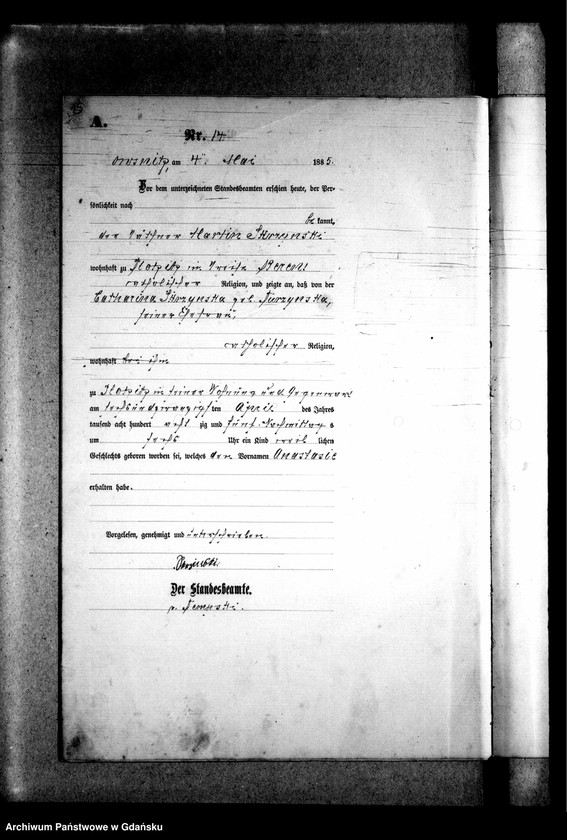 A.
Nr. 14
am 4. Mai 1885.
Vor dem unterzeichneten Standesbeamten erschien heute, der Per-
sönlichkeit nach
be kannt,
der Käthner Martin Skrzynski
wohnhaft zu im Kreise Berent
catholischer Religion, und zeigte an, daß von der
Catharina Skrzynska geb.
seiner Ehefrau,
catholischer Religion,
wohnhaft bei ihm
zu in seiner Wohnung und Gegenwart
am sechsundzwanzigsten April des Jahres
tausend acht hundert acht zig und fünf Nachmittag s
um sechs Uhr ein Kind weib lichen
Geschlechts geboren worden sei, welches den Vornamen Anastasie
erhalten habe.
Vorgelesen, genehmigt und unterschrieben.
Der Standesbeamte.
Archiwum Państwowe w Gdańsku